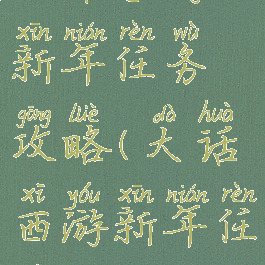 xīn nián rèn wù
新年任务
gōng lüè dà huà
攻略(大话
xī yóu xīn nián rèn
西游新年任